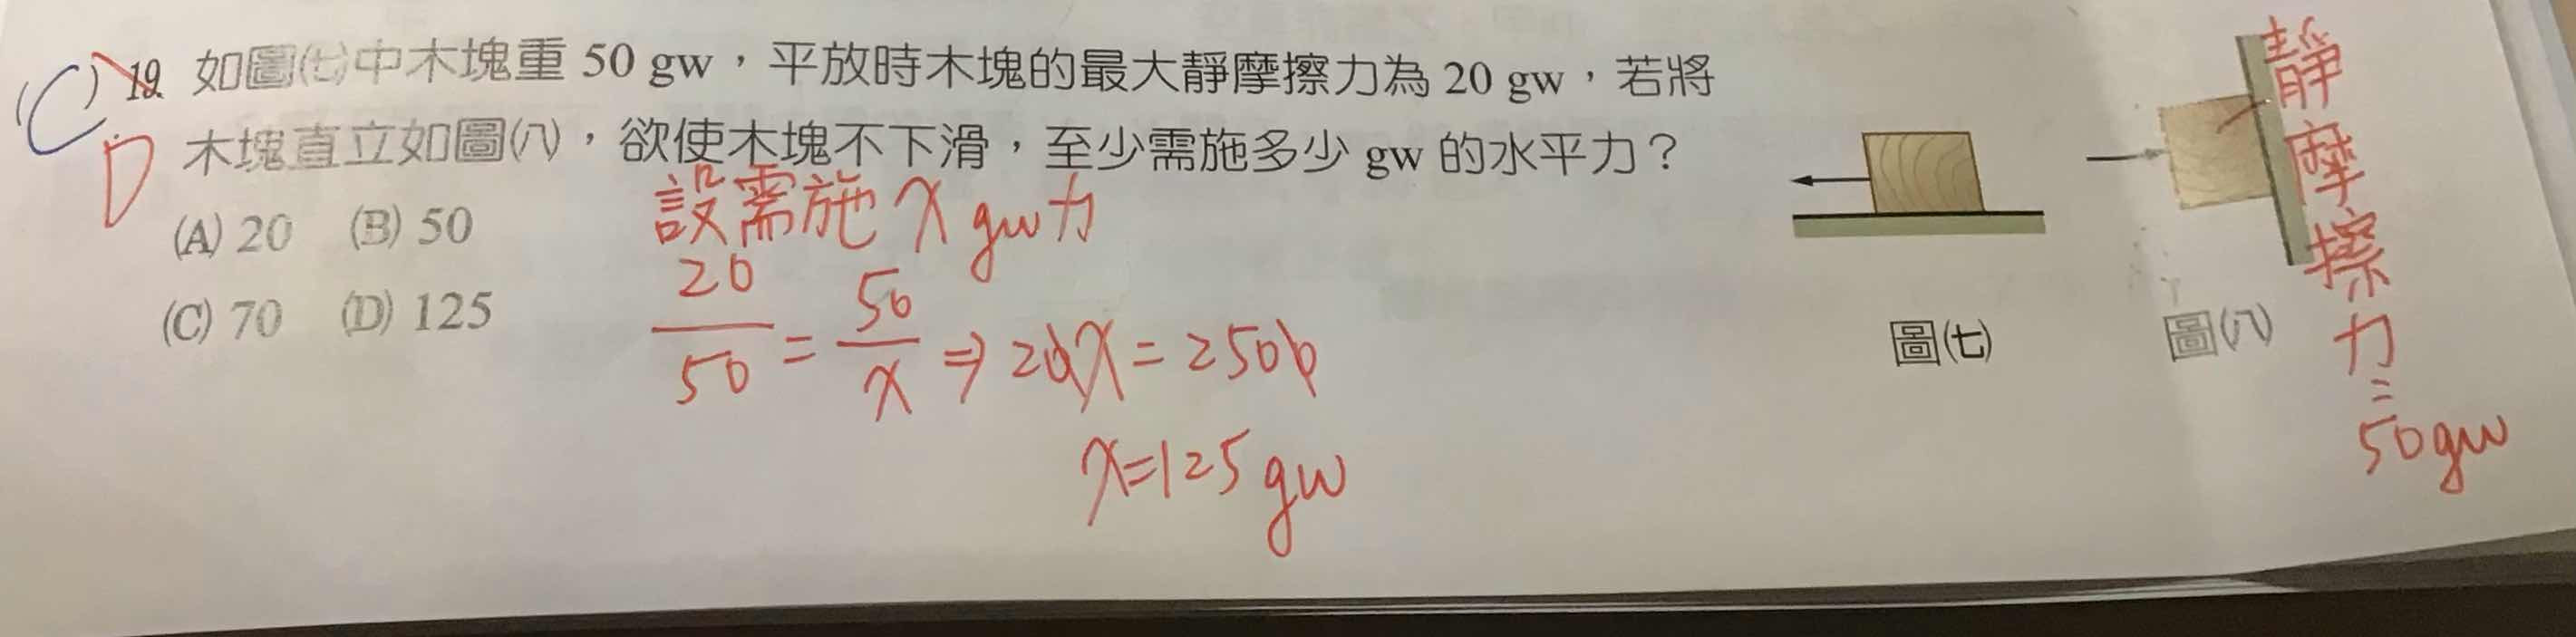 (C) 19. 如圖(七)中木塊重 50 gw，平放時木塊的最大靜摩擦力為 20 gw，若將
D 木塊直立如圖(八)，欲使木塊不下滑，至少需施多少 gw 的水平力？
(A) 20 (B) 50
(C) 70 (D) 125
設需施 x gw 力
20/50 = 50/x ⇒ 20x = 2500
x=125 gw
圖(七)
圖(八)
靜摩擦力=50gw